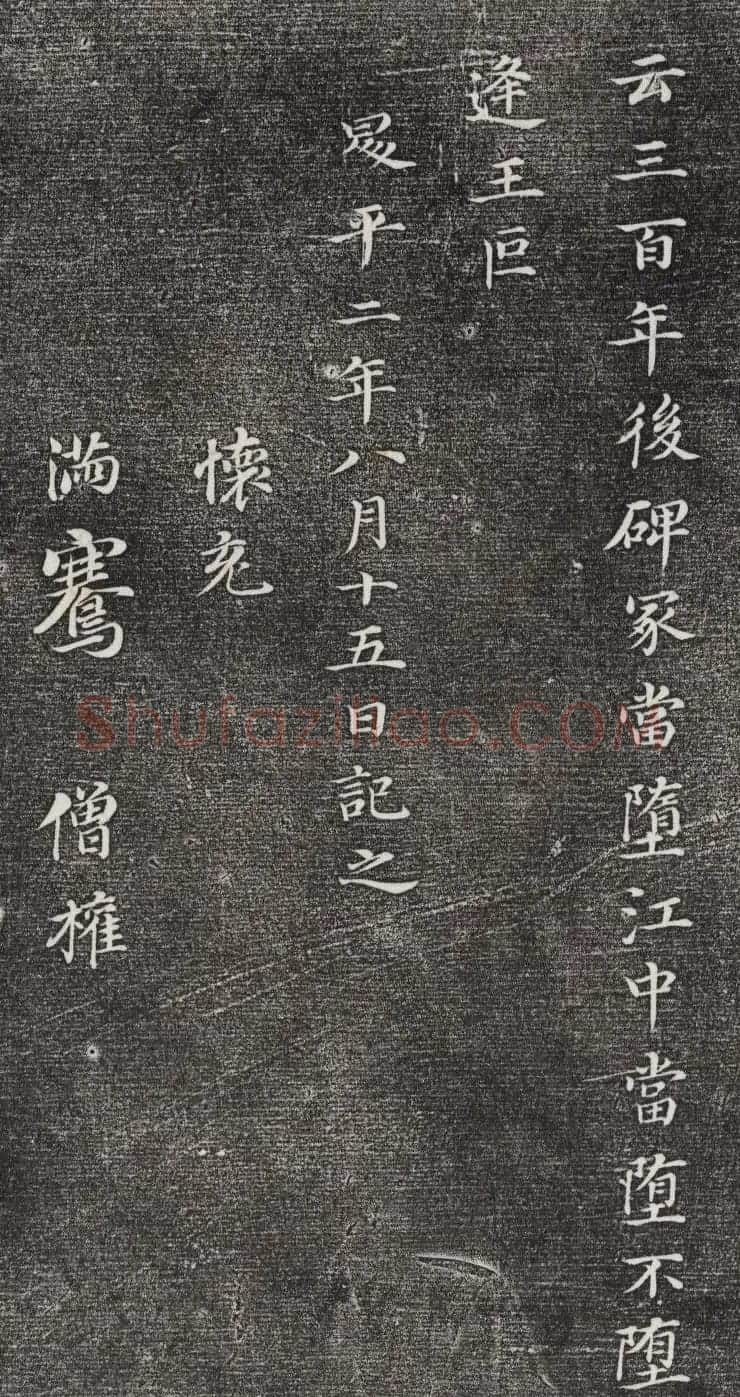 云三百年後碑冢當墮江中當墮不墮
逢王叵
昇平二年八月十五日記之
懷充
滿騫 僧權
Shufaziliao.COM